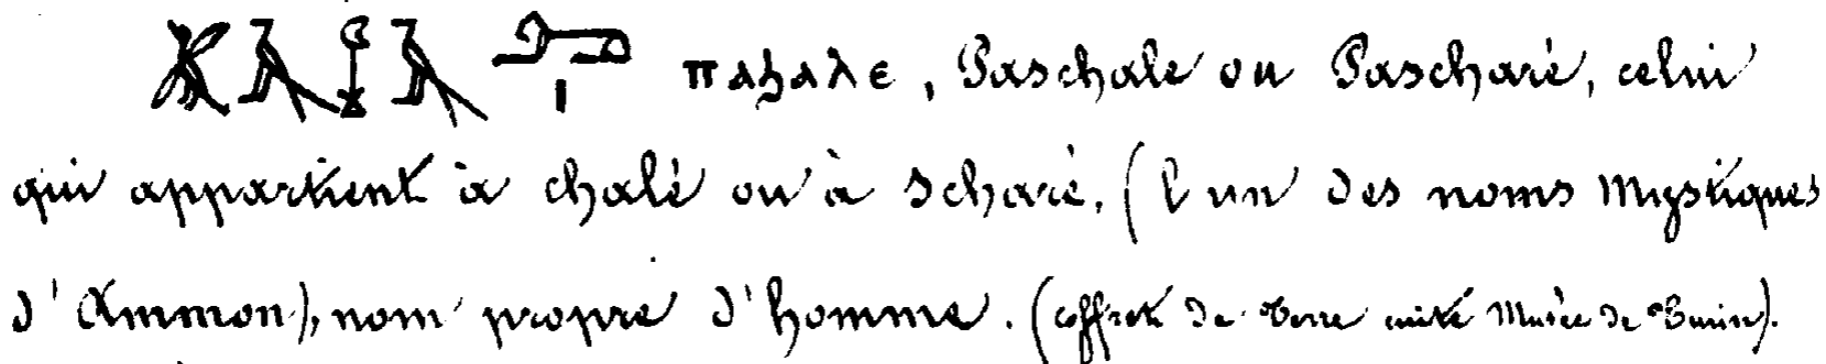 ⲡⲁϧⲁⲗⲉ, Paschale ou Pascharé, celui
qui appartient à chalé ou à Scharé, (l'un des noms Mystiques
d'Ammon), nom propre d'homme. (coffret de terre cuite Musée de Turin).